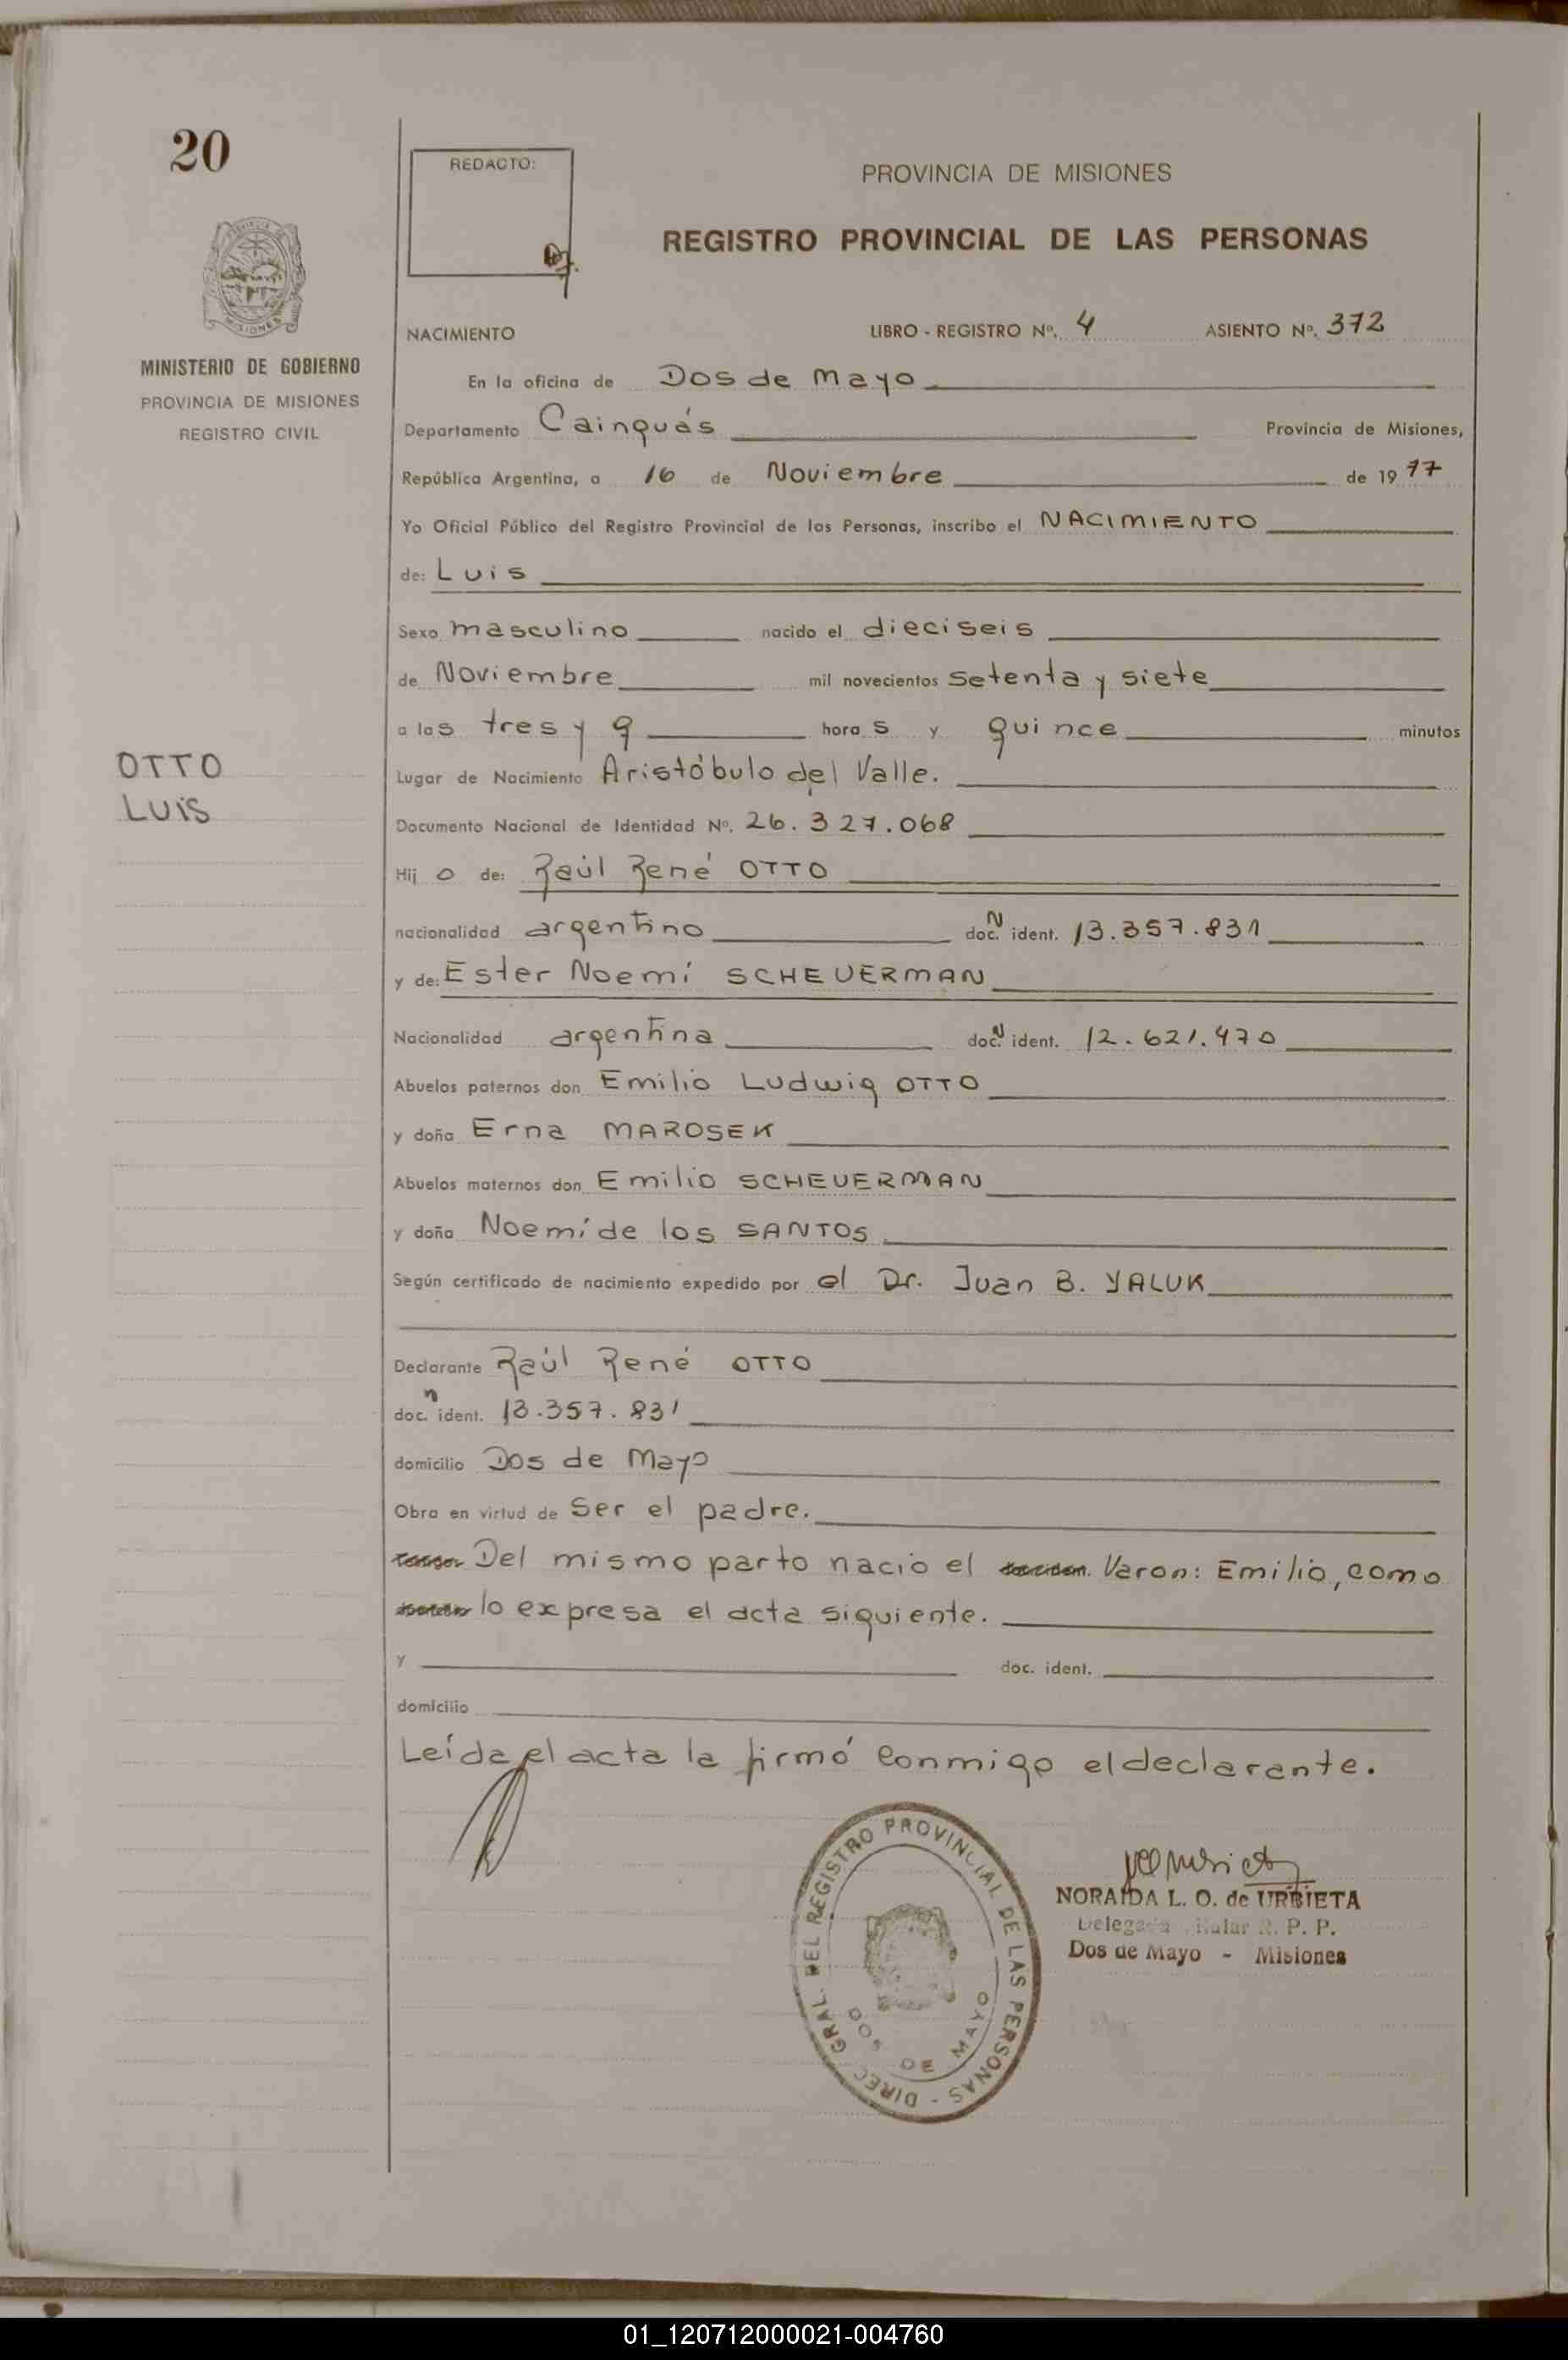 20
REDACTO:
PROVINCIA DE MISIONES
REGISTRO PROVINCIAL DE LAS PERSONAS
MISIONES
MINISTERIO DE GOBIERNO
PROVINCIA DE MISIONES
REGISTRO CIVIL
NACIMIENTO LIBRO - REGISTRO Nº. 4 ASIENTO Nº. 372
En la oficina de Dos de Mayo
Departamento Cainguás Provincia de Misiones,
República Argentina, a 16 de Noviembre de 1977
Yo Oficial Público del Registro Provincial de las Personas, inscribo el NACIMIENTO
de: Luis
Sexo masculino nacido el dieciseis
de Noviembre mil novecientos setenta y siete
a las tres y q horas y quince minutos
OTTO
LUIS
Lugar de Nacimiento Aristóbulo del Valle.
Documento Nacional de Identidad Nº. 26.327.068
Hijo de: Raúl René OTTO
nacionalidad argentino doc. N ident. 13.357.831
y de: Ester Noemí SCHEUERMAN
Nacionalidad argentina doc. N ident. 12.621.470
Abuelos paternos don Emilio Ludwig OTTO
y doña Erna MAROSEK
Abuelos maternos don Emilio SCHEUERMAN
y doña Noemí de los SANTOS
Según certificado de nacimiento expedido por el Dr. Juan B. YALUK
Declarante Raúl René OTTO
doc. n ident. 13.357.831
domicilio Dos de Mayo
Obra en virtud de Ser el padre.
Del mismo parto nació el Varon: Emilio, como
lo expresa el acta siguiente.
y doc. ident.
domicilio
Leída el acta la firmó conmigo el declarante.
DIREC. GRAL. DEL REGISTRO PROVINCIAL DE LAS PERSONAS -
DOS DE MAYO
NORAIDA L. O. de URBIETA
R. P. P.
Dos de Mayo - Misiones
01_120712000021-004760